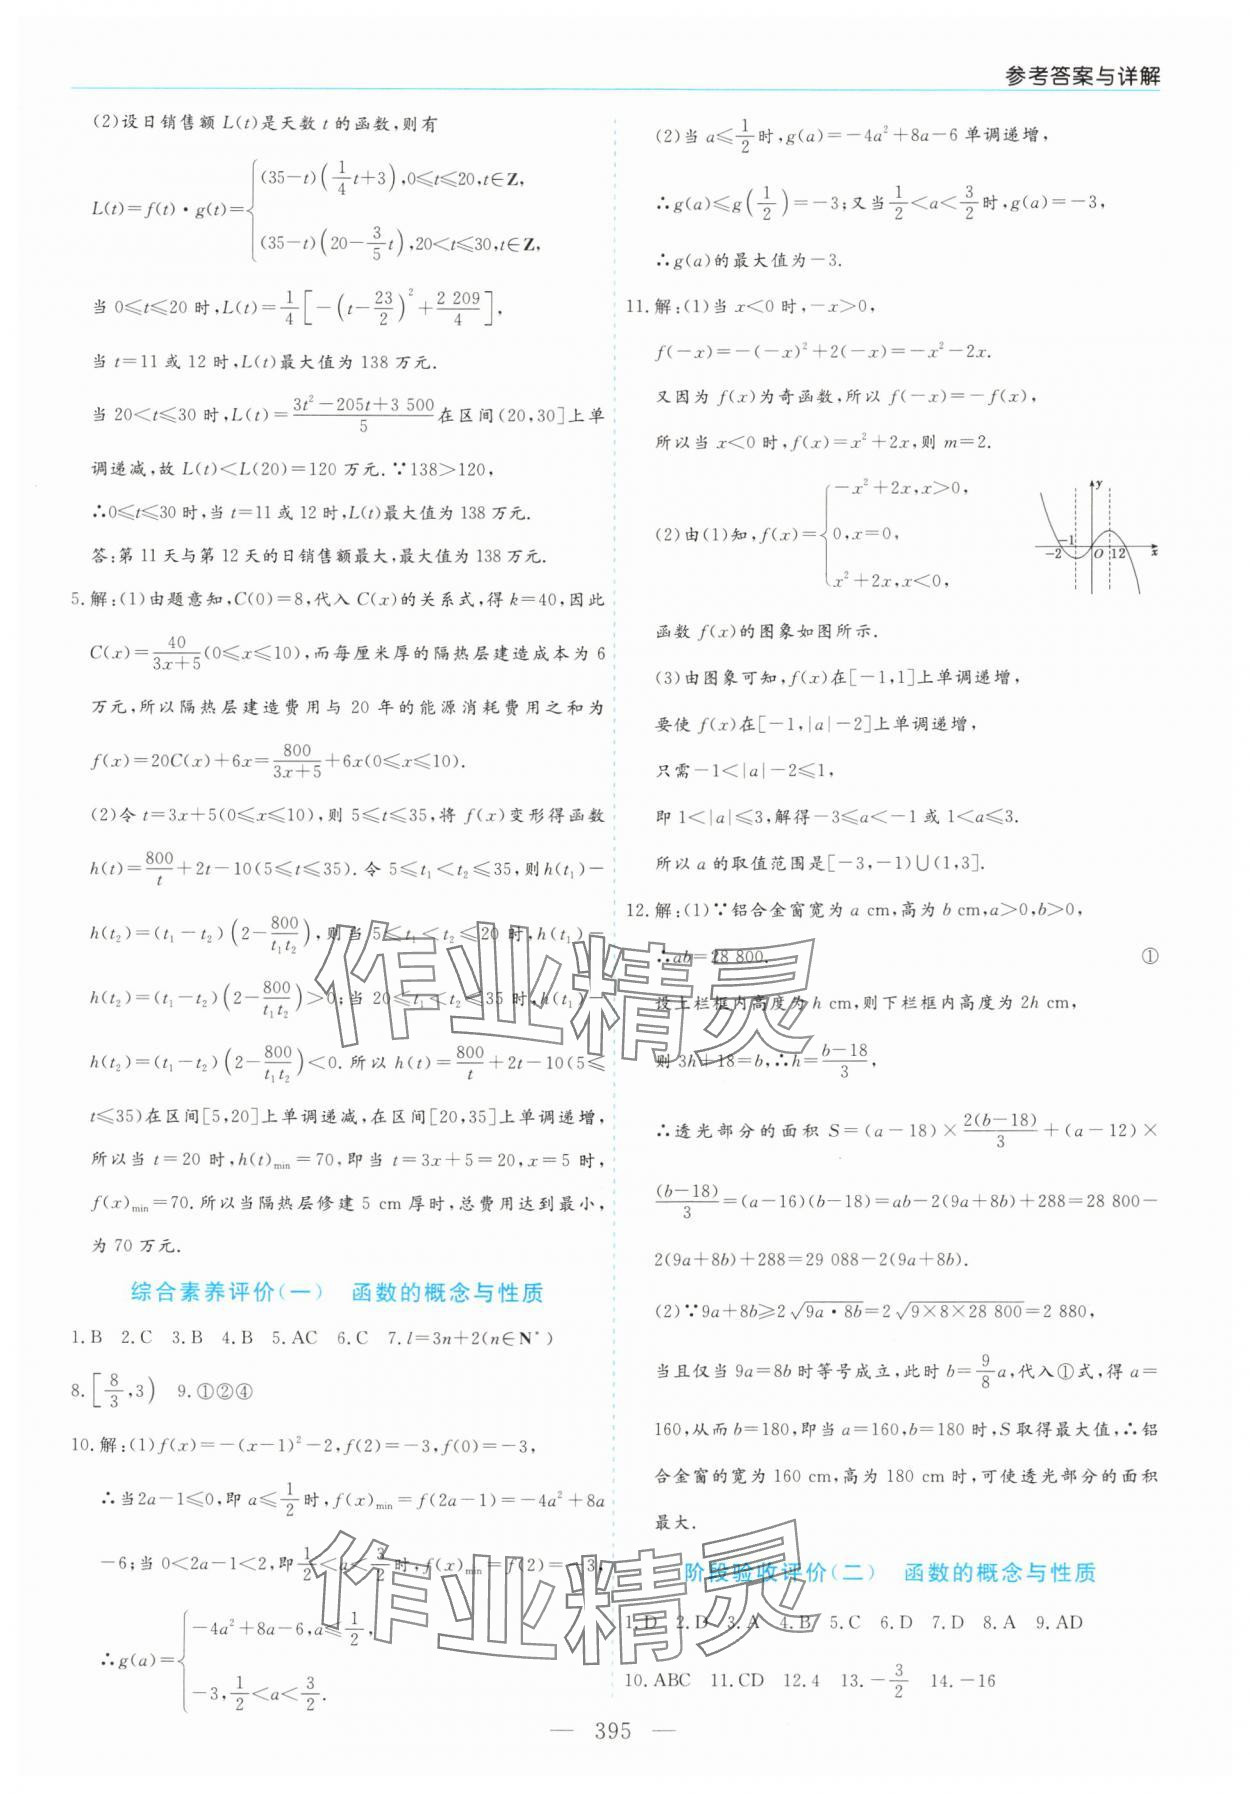 参考答案与详解
(2)设日销售额 L(t)是天数 t 的函数,则有
L(t)=f(t)·g(t)={(35-t)(1/4t+3),0≤t≤20,t∈Z,
(35-t)(20-3/5t),20<t≤30,t∈Z,
当 0≤t≤20 时,L(t)=1/4[-(t-23/2)²+2 209/4],
当 t=11 或 12 时,L(t)最大值为 138 万元.
当 20<t≤30 时,L(t)=(3t²-205t+3 500)/5在区间(20,30]上单
调递减,故 L(t)<L(20)=120 万元.∵138>120,
∴0≤t≤30 时,当 t=11 或 12 时,L(t)最大值为 138 万元.
答:第 11 天与第 12 天的日销售额最大,最大值为 138 万元.
5.解:(1)由题意知,C(0)=8,代入 C(x)的关系式,得 k=40,因此
C(x)=40/(3x+5)(0≤x≤10),而每厘米厚的隔热层建造成本为 6
万元,所以隔热层建造费用与 20 年的能源消耗费用之和为
f(x)=20C(x)+6x=800/(3x+5)+6x(0≤x≤10).
(2)令 t=3x+5(0≤x≤10),则 5≤t≤35,将 f(x)变形得函数
h(t)=800/t+2t-10(5≤t≤35).令 5≤t₁<t₂≤35,则h(t₁)-
h(t₂)=(t₁-t₂)(2-800/(t₁t₂)),则当 5≤t₁<t₂≤20 时,h(t₁)-
h(t₂)=(t₁-t₂)(2-800/(t₁t₂))>0;当 20≤t₁<t₂≤35 时,h(t₁)-
h(t₂)=(t₁-t₂)(2-800/(t₁t₂))<0.所以 h(t)=800/t+2t-10(5≤
t≤35)在区间[5,20]上单调递减,在区间[20,35]上单调递增,
所以当 t=20 时,h(t)min=70,即当 t=3x+5=20,x=5 时,
f(x)min=70.所以当隔热层修建 5 cm 厚时,总费用达到最小,
为 70 万元.
综合素养评价(一) 函数的概念与性质
1.B 2.C 3.B 4.B 5.AC 6.C 7.l=3n+2(n∈N*)
8.[8/3,3) 9.①②④
10.解:(1)f(x)=-(x-1)²-2,f(2)=-3,f(0)=-3,
∴当2a-1≤0,即 a≤1/2时,f(x)min=f(2a-1)=-4a²+8a
-6;当 0<2a-1<2,即1/2<a<3/2时,f(x)min=f(0)=-3,
∴g(a)={-4a²+8a-6,a≤1/2,
-3,1/2<a<3/2.
(2)当 a≤1/2时,g(a)=-4a²+8a-6 单调递增,
∴g(a)≤g(1/2)=-3;又当1/2<a<3/2时,g(a)=-3,
∴g(a)的最大值为-3.
11.解:(1)当 x<0 时,-x>0,
f(-x)=-(-x)²+2(-x)=-x²-2x.
又因为 f(x)为奇函数,所以 f(-x)=-f(x),
所以当 x<0 时,f(x)=x²+2x,则 m=2.
(2)由(1)知,f(x)={-x²+2x,x>0,
0,x=0,
x²+2x,x<0,
y
-1
-2 O 12 x
函数 f(x)的图象如图所示.
(3)由图象可知,f(x)在[-1,1]上单调递增,
要使 f(x)在[-1,|a|-2]上单调递增,
只需-1<|a|-2≤1,
即 1<|a|≤3,解得-3≤a<-1 或 1<a≤3.
所以 a 的取值范围是[-3,-1)∪(1,3].
12.解:(1)∵铝合金窗宽为 a cm,高为 b cm,a>0,b>0,
∴ab=28 800. ①
设上栏框内高度为 h cm,则下栏框内高度为 2h cm,
则 3h+18=b,∴h=(b-18)/3,
∴透光部分的面积 S=(a-18)×2(b-18)/3+(a-12)×
(b-18)/3=(a-16)(b-18)=ab-2(9a+8b)+288=28 800-
2(9a+8b)+288=29 088-2(9a+8b).
(2)∵9a+8b≥2√(9a·8b)=2√(9×8×28 800)=2 880,
当且仅当 9a=8b 时等号成立,此时 b=9/8a,代入①式,得 a=
160,从而 b=180,即当 a=160,b=180 时,S 取得最大值,∴铝
合金窗的宽为 160 cm,高为 180 cm 时,可使透光部分的面积
最大.
阶段验收评价(二) 函数的概念与性质
1.D 2.D 3.A 4.B 5.C 6.D 7.D 8.A 9.AD
10.ABC 11.CD 12.4 13.-3/2 14.-16
— 395 —
作业精灵
作业精灵